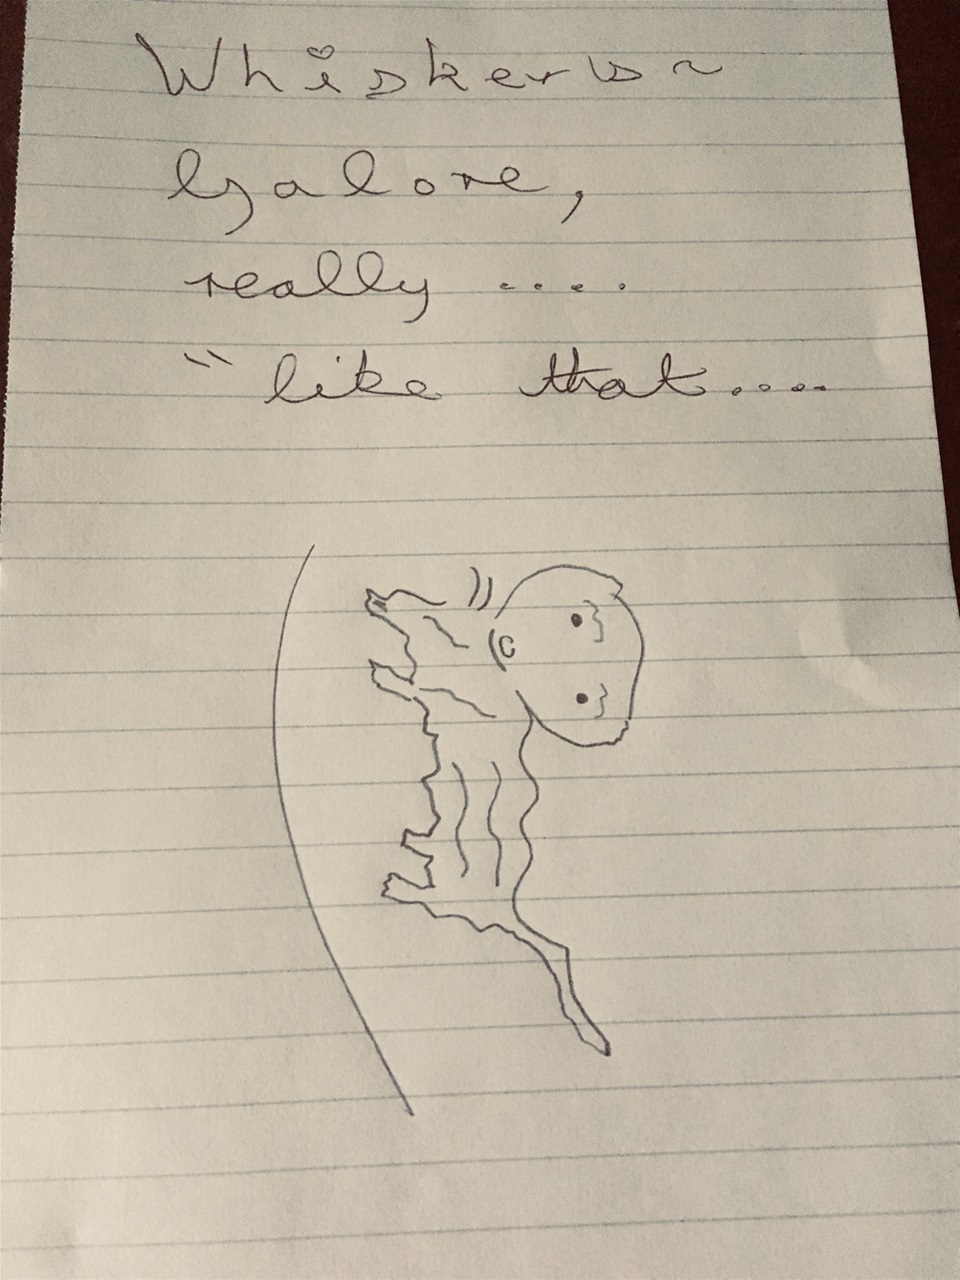 Whiskers ~
Galore,
really ....
" like that....